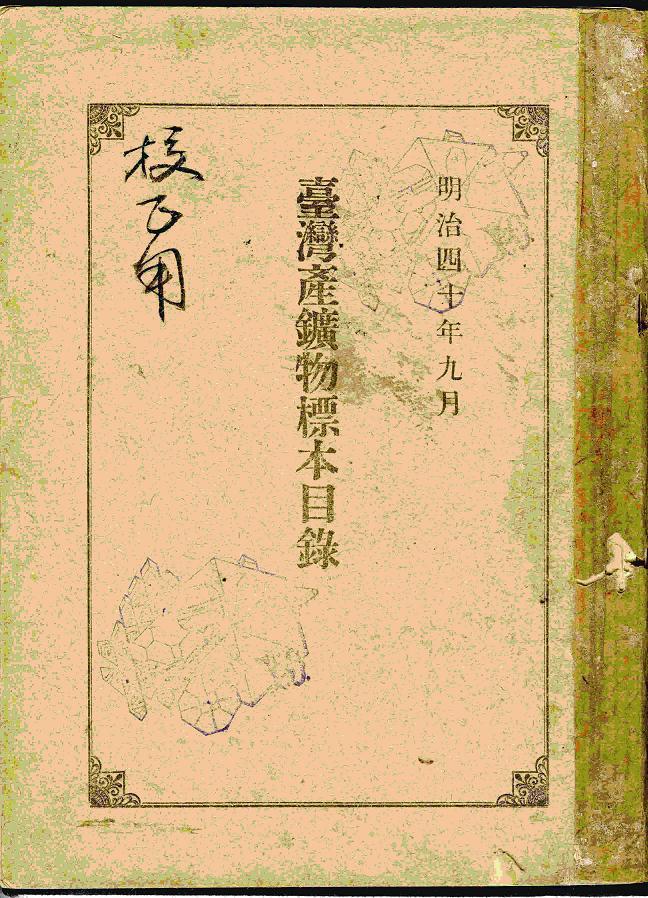 明治四十年九月
臺灣產鑛物標本目錄
校正用